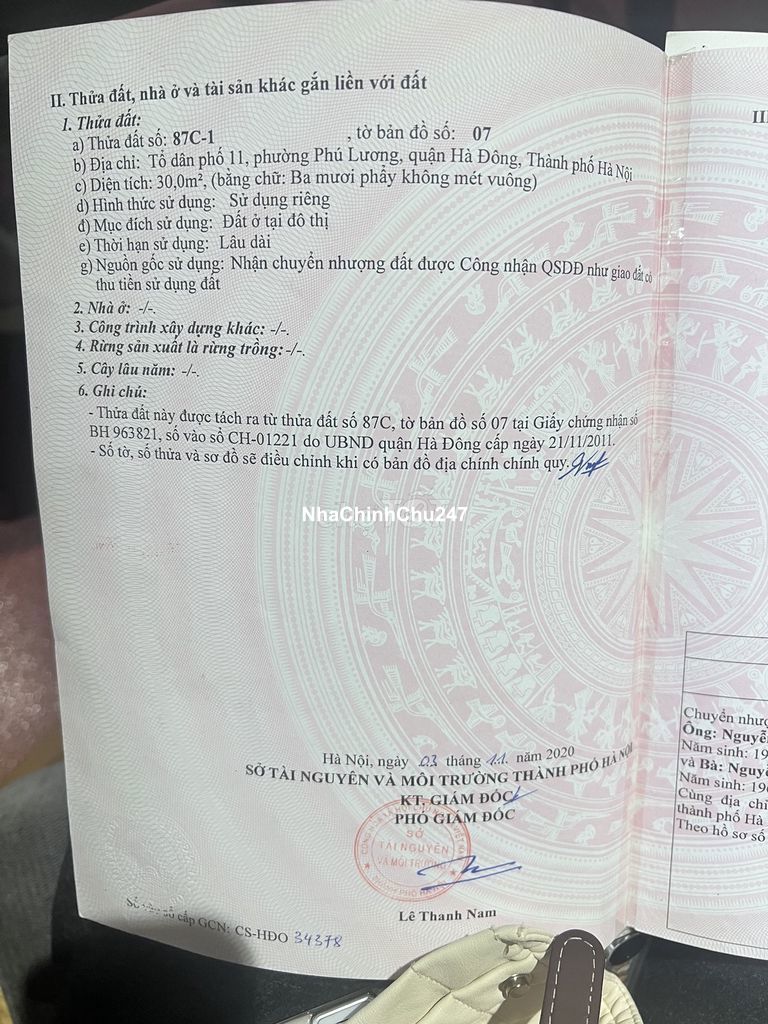 II. Thửa đất, nhà ở và tài sản khác gắn liền với đất
1. Thửa đất:
a) Thửa đất số: 87C-1 , tờ bản đồ số: 07
b) Địa chỉ: Tổ dân phố 11, phường Phú Lương, quận Hà Đông, Thành phố Hà Nội
c) Diện tích: 30,0m², (bằng chữ: Ba mươi phẩy không mét vuông)
d) Hình thức sử dụng: Sử dụng riêng
đ) Mục đích sử dụng: Đất ở tại đô thị
e) Thời hạn sử dụng: Lâu dài
g) Nguồn gốc sử dụng: Nhận chuyển nhượng đất được Công nhận QSDĐ như giao đất có
thu tiền sử dụng đất
2. Nhà ở: -/-.
3. Công trình xây dựng khác: -/-.
4. Rừng sản xuất là rừng trồng: -/-.
5. Cây lâu năm: -/-.
6. Ghi chú:
- Thửa đất này được tách ra từ thửa đất số 87C, tờ bản đồ số 07 tại Giấy chứng nhận số
BH 963821, số vào sổ CH-01221 do UBND quận Hà Đông cấp ngày 21/11/2011.
- Số tờ, số thửa và sơ đồ sẽ điều chỉnh khi có bản đồ địa chính chính quy.
NhaChinhChu247
Hà Nội, ngày 03 tháng 11 năm 2020
SỞ TÀI NGUYÊN VÀ MÔI TRƯỜNG THÀNH PHỐ HÀ NỘI
KT. GIÁM ĐỐC
PHÓ GIÁM ĐỐC
SỞ
TÀI NGUYÊN
VÀ MÔI TRƯỜNG
Lê Thanh Nam
Số vào sổ cấp GCN: CS-HĐO 34378
III
Chuyển nhượ
Ông: Nguyễ
Năm sinh: 19
và Bà: Nguyễ
Năm sinh: 19
Cùng địa chỉ
thành phố Hà
Theo hồ sơ số